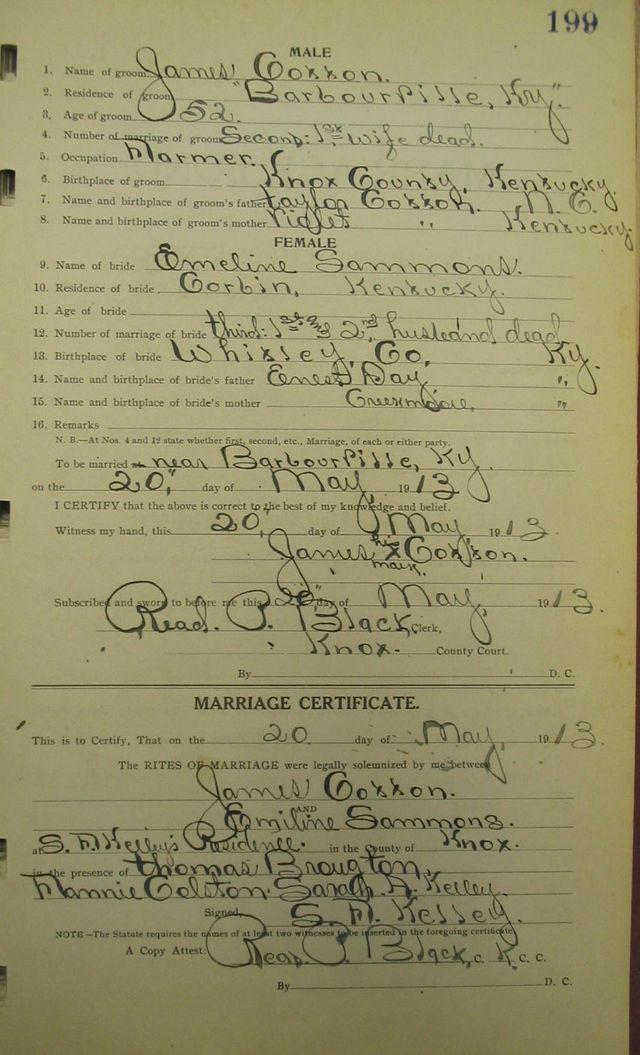 199
MALE
1. Name of groom James Cotton.
2. Residence of groom "Barbourville, Ky."
3. Age of groom 52.
4. Number of marriage of groom Second: 1st wife dead.
5. Occupation Farmer.
6. Birthplace of groom Knox County, Kentucky.
7. Name and birthplace of groom's father Taylor Cotton. N. C.
8. Name and birthplace of groom's mother Violet " Kentucky.
FEMALE
9. Name of bride Emeline Sammons.
10. Residence of bride Corbin, Kentucky.
11. Age of bride
12. Number of marriage of bride third: 1st and 2nd husband dead
13. Birthplace of bride Whitley, Co, Ky.
14. Name and birthplace of bride's father Ernest Day "
15. Name and birthplace of bride's mother "
16. Remarks
N. B.—At Nos. 4 and 12 state whether first, second, etc., Marriage, of each or either party.
To be married near Barbourville, Ky.
on the 20," day of May, 1913
I CERTIFY that the above is correct to the best of my knowledge and belief.
Witness my hand, this 20, day of May 1913
James his x mark Cotton.
Subscribed and sworn to before me this 20" day of May, 1913.
Read. P. Black, Clerk,
Knox. County Court.
By D. C.
MARRIAGE CERTIFICATE.
This is to Certify, That on the 20 day of May, 1913.
The RITES OF MARRIAGE were legally solemnized by me between
James Cotton.
AND
Emiline Sammons.
at S. A. Kelley's Residence. in the County of Knox.
in the presence of Thomas Brougton,
Fannie Colston. Sarah A. Kelley.
Signed, S. A. Kelley.
NOTE—The Statute requires the names of at least two witnesses to be inserted in the foregoing certificate
A Copy Attest: Read P. Black, C. K. C. C.
By D. C.